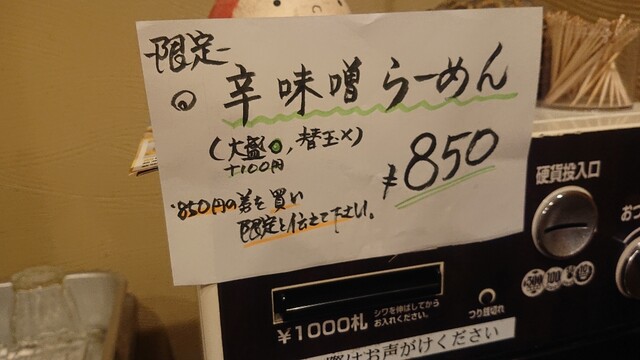 限定
辛味噌らーめん
(大盛◎, 替玉×)
+100円
¥850
・850円の券を買い
限定と伝えて下さい。
硬貨投入口
500
100
10
¥1000札
シワを伸ばしてから
お入れください。
つり銭切れ
はお声がけください